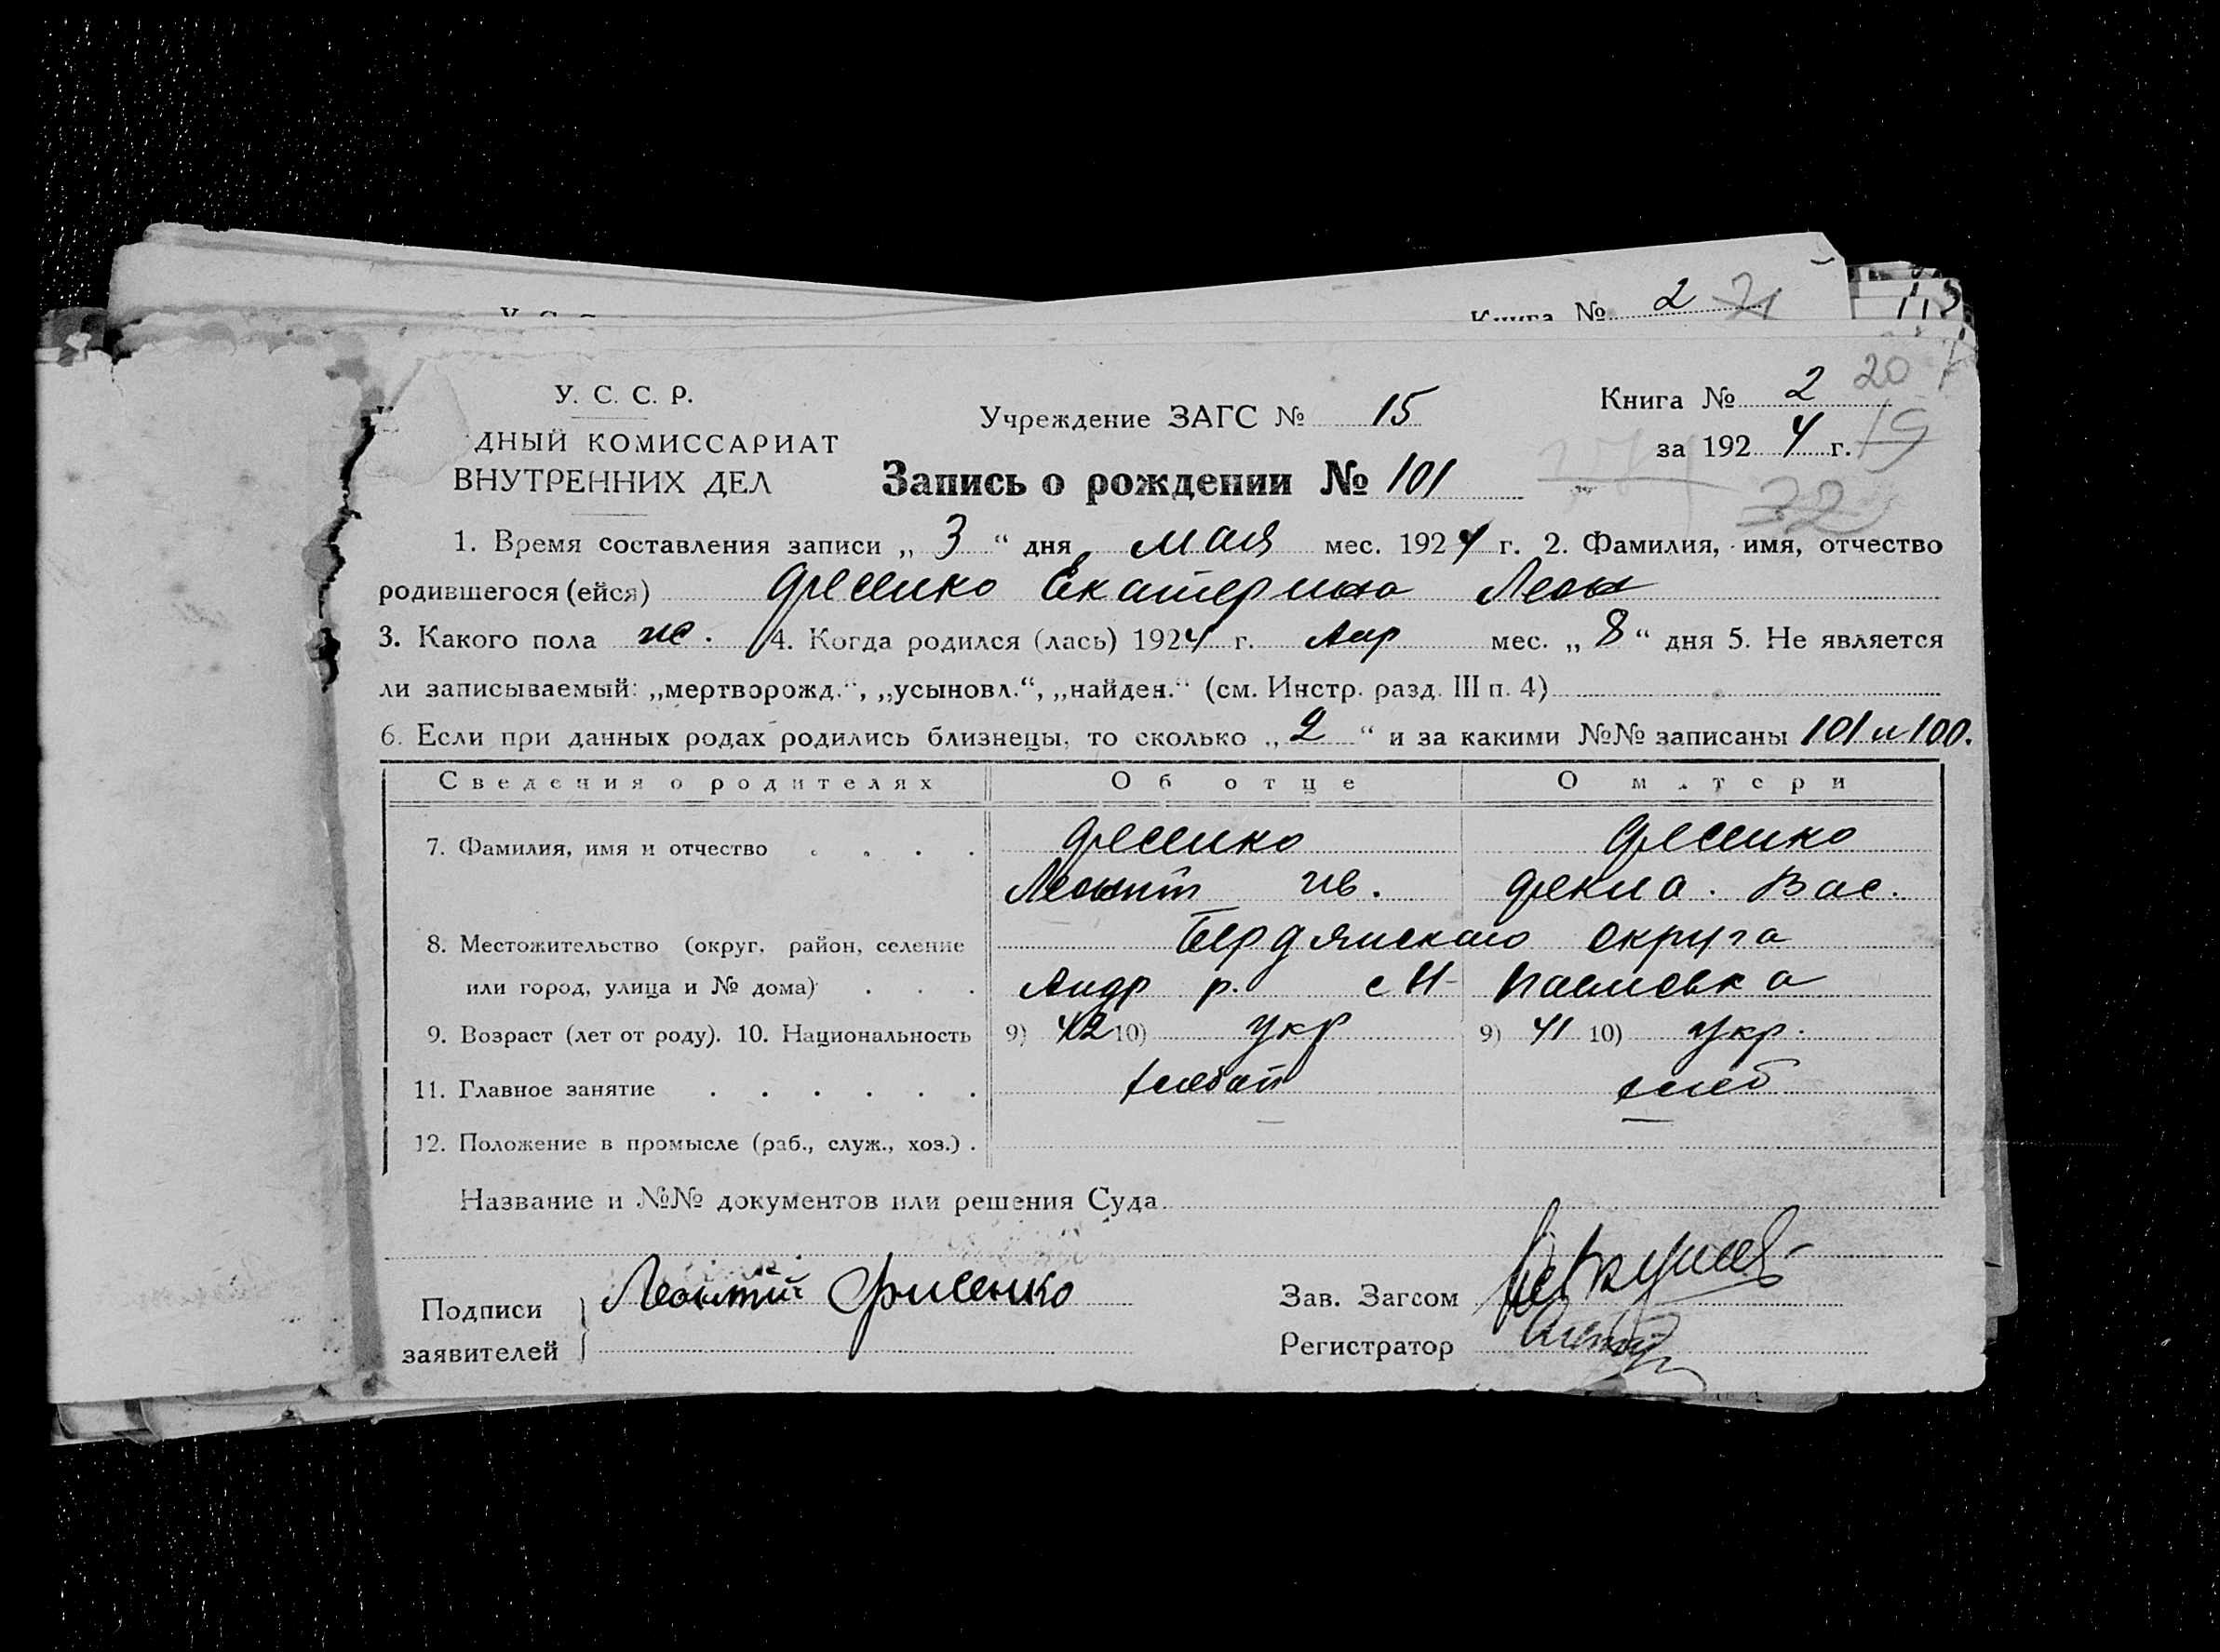 У. С. С. Р.
Книга № 2 21
У. С. С. Р.
Учреждение ЗАГС № 15
Книга № 2 20
ДНЫЙ КОМИССАРИАТ
за 1924 г. 19
ВНУТРЕННИХ ДЕЛ
Запись о рождении № 101
22
1. Время составления записи „ 3 “ дня мая мес. 1924 г. 2. Фамилия, имя, отчество
родившегося (ейся) Фесенко Екатерина Леон
3. Какого пола же. 4. Когда родился (лась) 1924 г. Апр мес. „ 8 “ дня 5. Не является
ли записываемый: „мертворожд.“, „усыновл.“, „найден.“ (см. Инстр. разд. III п. 4)
6. Если при данных родах родились близнецы, то сколько „ 2 “ и за какими №№ записаны 101 и 100.
Сведения о родителях Об отце О матери
7. Фамилия, имя и отчество Фесенко Фесенко
Леонт Ив. Фекла. Вас.
8. Местожительство (округ, район, селение Бердянского округа
или город, улица и № дома) Андр р. с Н-
9. Возраст (лет от роду). 10. Национальность 9) 42 10) укр 9) 41 10) укр.
11. Главное занятие хлебоп хлеб
12. Положение в промысле (раб., служ., хоз.) — —
Название и №№ документов или решения Суда
Подписи
заявителей
Леонтий Фисенко
Зав. Загсом
Регистратор